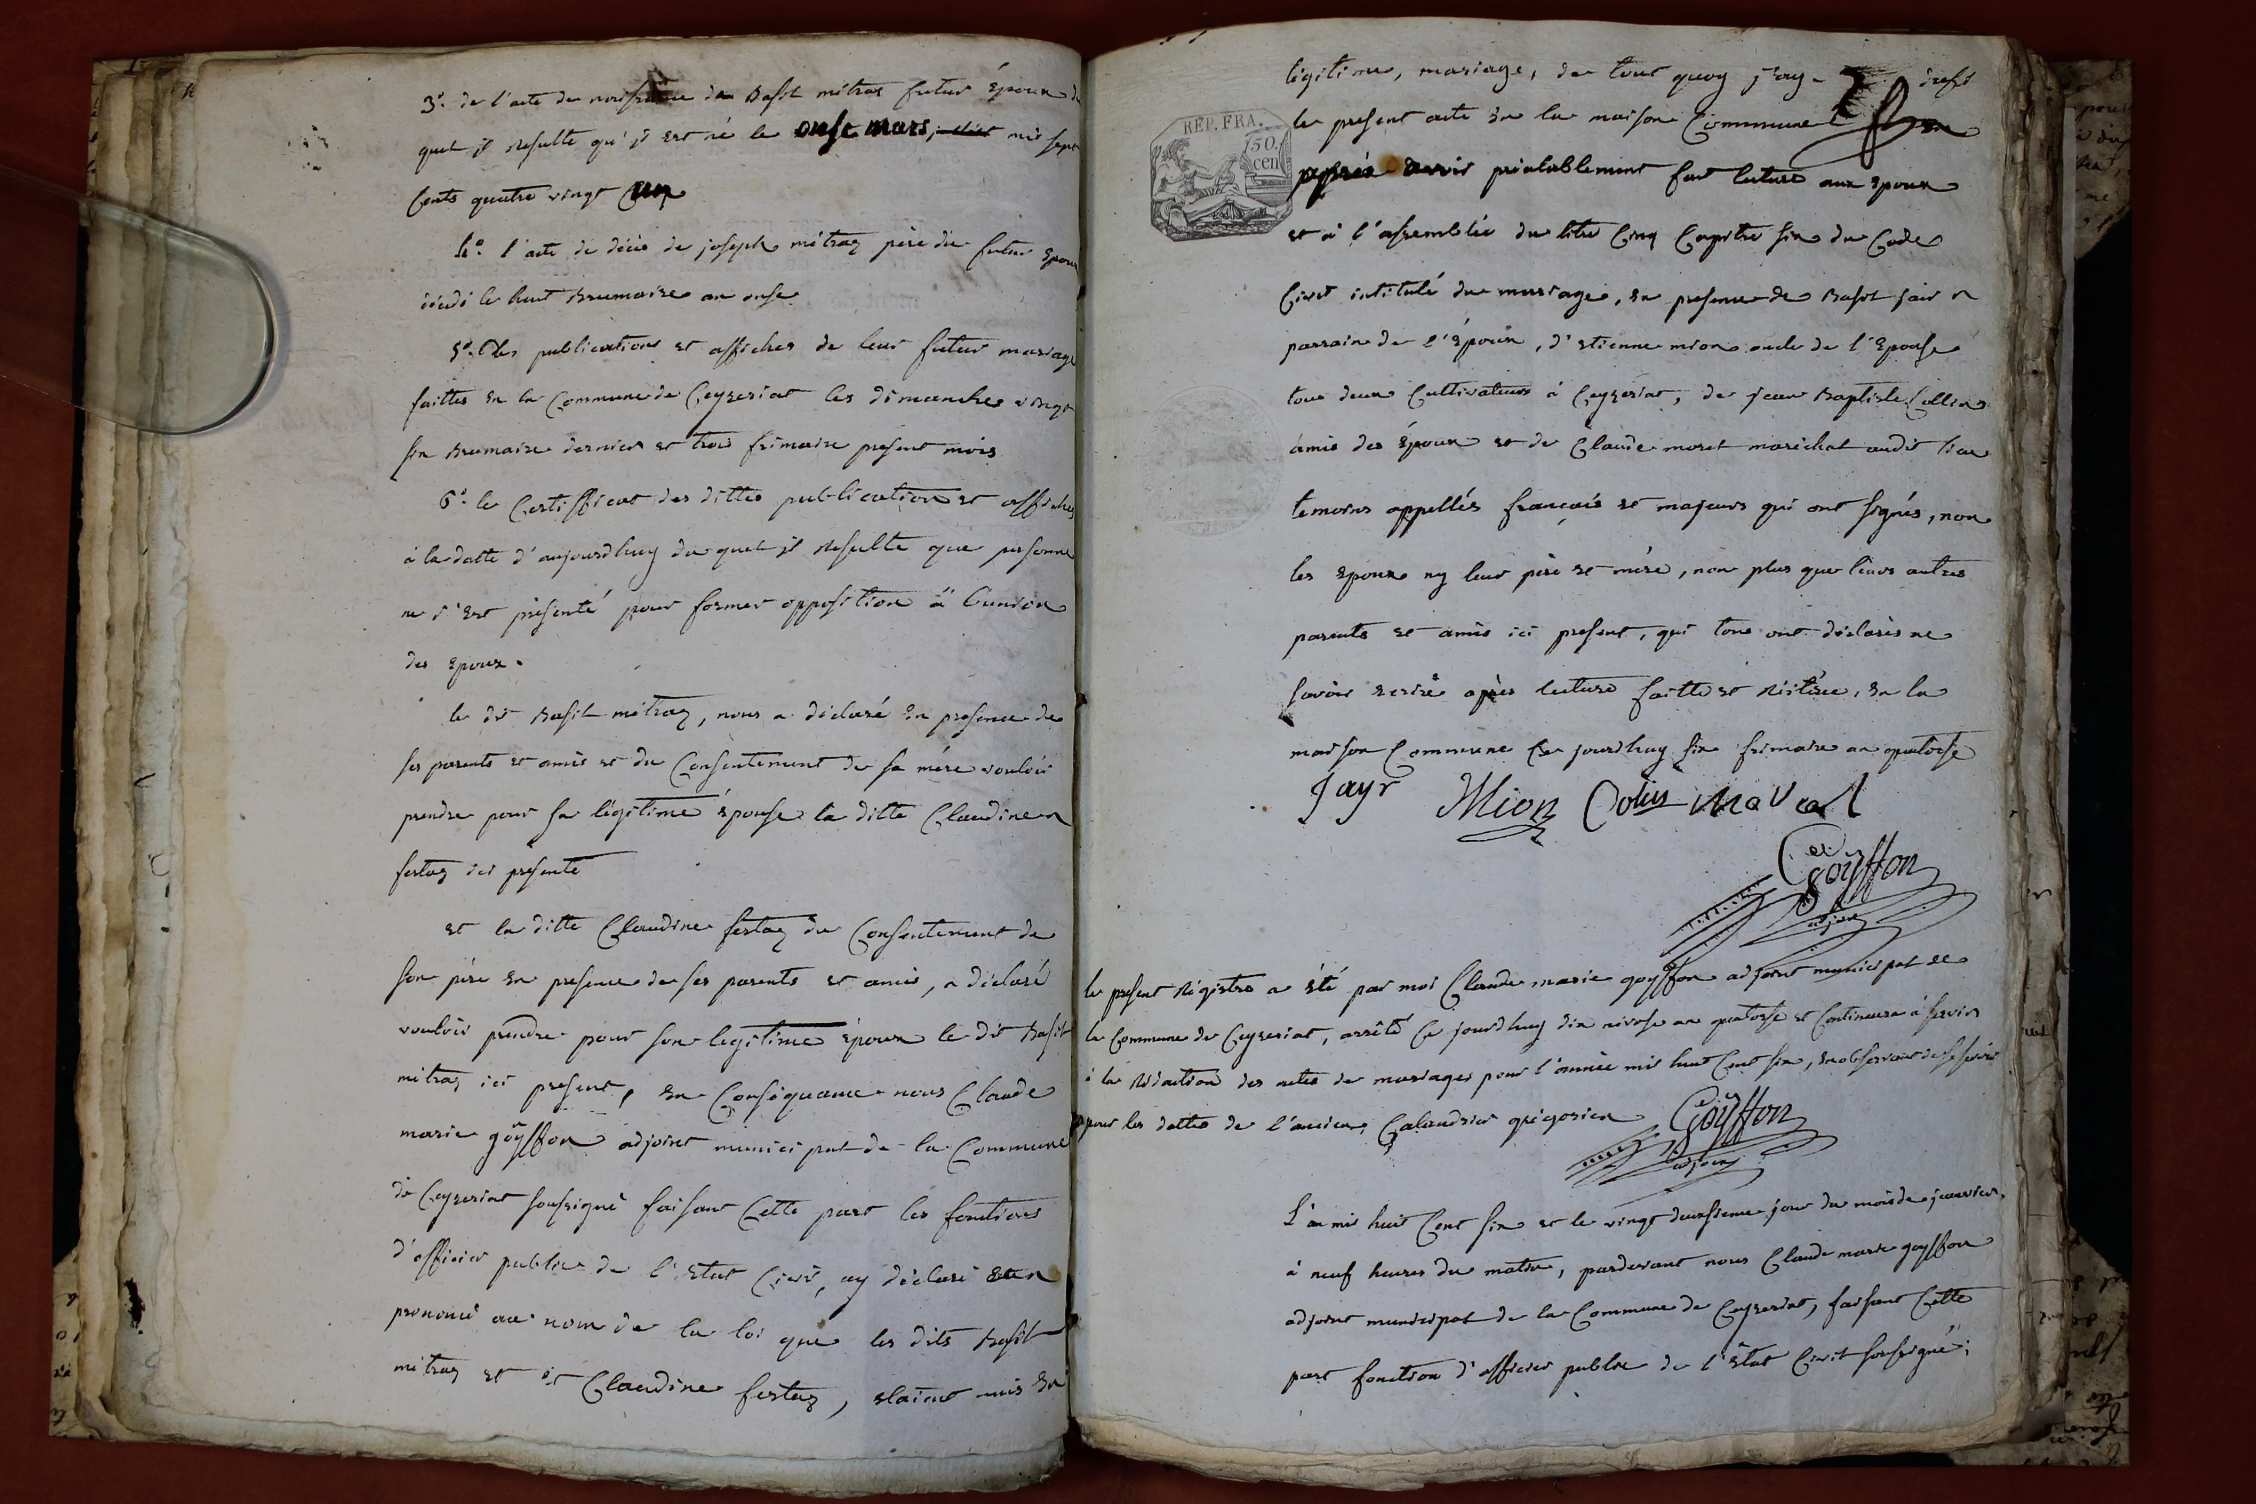 3°. de l'acte de naissance de Basil métraz futur Époux du
quel jl Resulte qu'jl est né le onse mars, mil sept
Cents quatre vingt Cinq
4°. l'acte de décès de joseph métraz père du futur Epoux
décédé le huit Brumaire an onse
5°. des publications et affiches de leur futur mariage
faittes En la Commune de Ceyzeriat les dimanches vingt
six Brumaire dernier et trois frimaire present mois
6°. le Certifficat des dittes publications et affiches
à la datte d'aujourdhuy du quel jl Resulte que personne
ne s'Est présenté pour former opposition à l'union
des Epoux.
le dit Basil métraz, nous a déclaré En presence de
ses parents et amis et du Consentement de sa mére vouloir
prendre pour sa légitime épouse la ditte Claudine
festaz ici présente
et la ditte Claudine festaz du Consentement de
son pére En presence de ses parents et amis, a déclaré
vouloir prendre pour son legitime époux le dit Basil
métraz ici present, En Conséquance nous Claude
marie goÿffon adjoint municipal de la Commune
de Ceyzeriat soussigné faisant Cette part les fonctions
d'officier public de l'Etat Civil, ay déclaré
prononcé au nom de la loi que les dits Basil
métraz et Claudine festaz, étaient unis En
légitime mariage, de tout quoy j'ay
REP. FRA.
50.
cen
le present acte En la maison Commune
après avoir préalablement fait lecture aux Epoux
et à l'assemblée du titre Cinq Capitre six du Code
Civil intitulé du mariage, En presence de Basil jair
parrain de l'Époux, d'Etienne mion oncle de l'Epouse
tous deux Cultivateurs à Ceyzeriat, de jean Baptiste Collin
amis des Époux et de Claude moret maréchal audit lieu
temoins appellés français et majeurs qui ont signés, non
les Epoux ny leur pére et mére, non plus que leurs autres
parents et amis ici present, qui tous ont déclarés ne
savoir Ecrire après lecture faitte et Réitérée, En la
maison Commune Ce jourdhuy six frimaire an quatorse
Jayr Mion Colin
Goÿffon
adjoint
le present Régistre a été par moi Claude marie goÿffon adjoint municipal de
la Commune de Ceyzeriat, arrêté Ce jourdhuy dix nivose an quatorse et Continuera à servir
à la Rédaction des actes de mariages pour l'année mil huit Cent six, En observant de se servir
pour les dattes de l'ancien Calandrier grégorien Goÿffon
adjoint
L'an mil huit Cent six et le vingt deuxsieme jour du mois de janvier,
à neuf heures du matin, pardevant nous Claude marie goyffon
adjoint municipal de la Commune de Ceyzeriat, faisant Cette
part fonction d'officier public de l'État Civil soussigné;